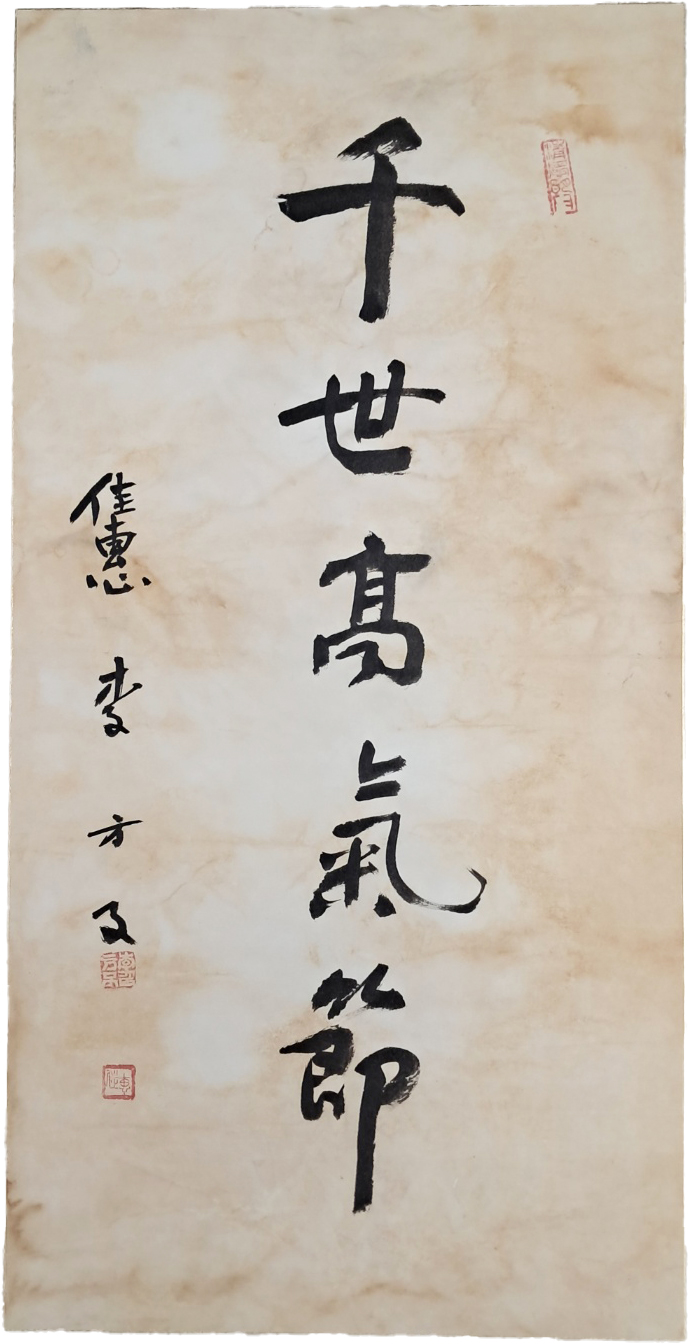 千世高氣節
佳惠 李方